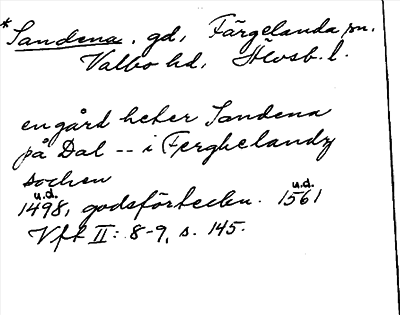 *Sandena. gd, Färgelanda sn.
Valbo hd, Älvsb. l.
en gård heter Sandena
på Dal -- i Ferghelandz
sochen
u.d. u.d.
1498, godsförteckn. 1561
Vft II: 8-9, s. 145.